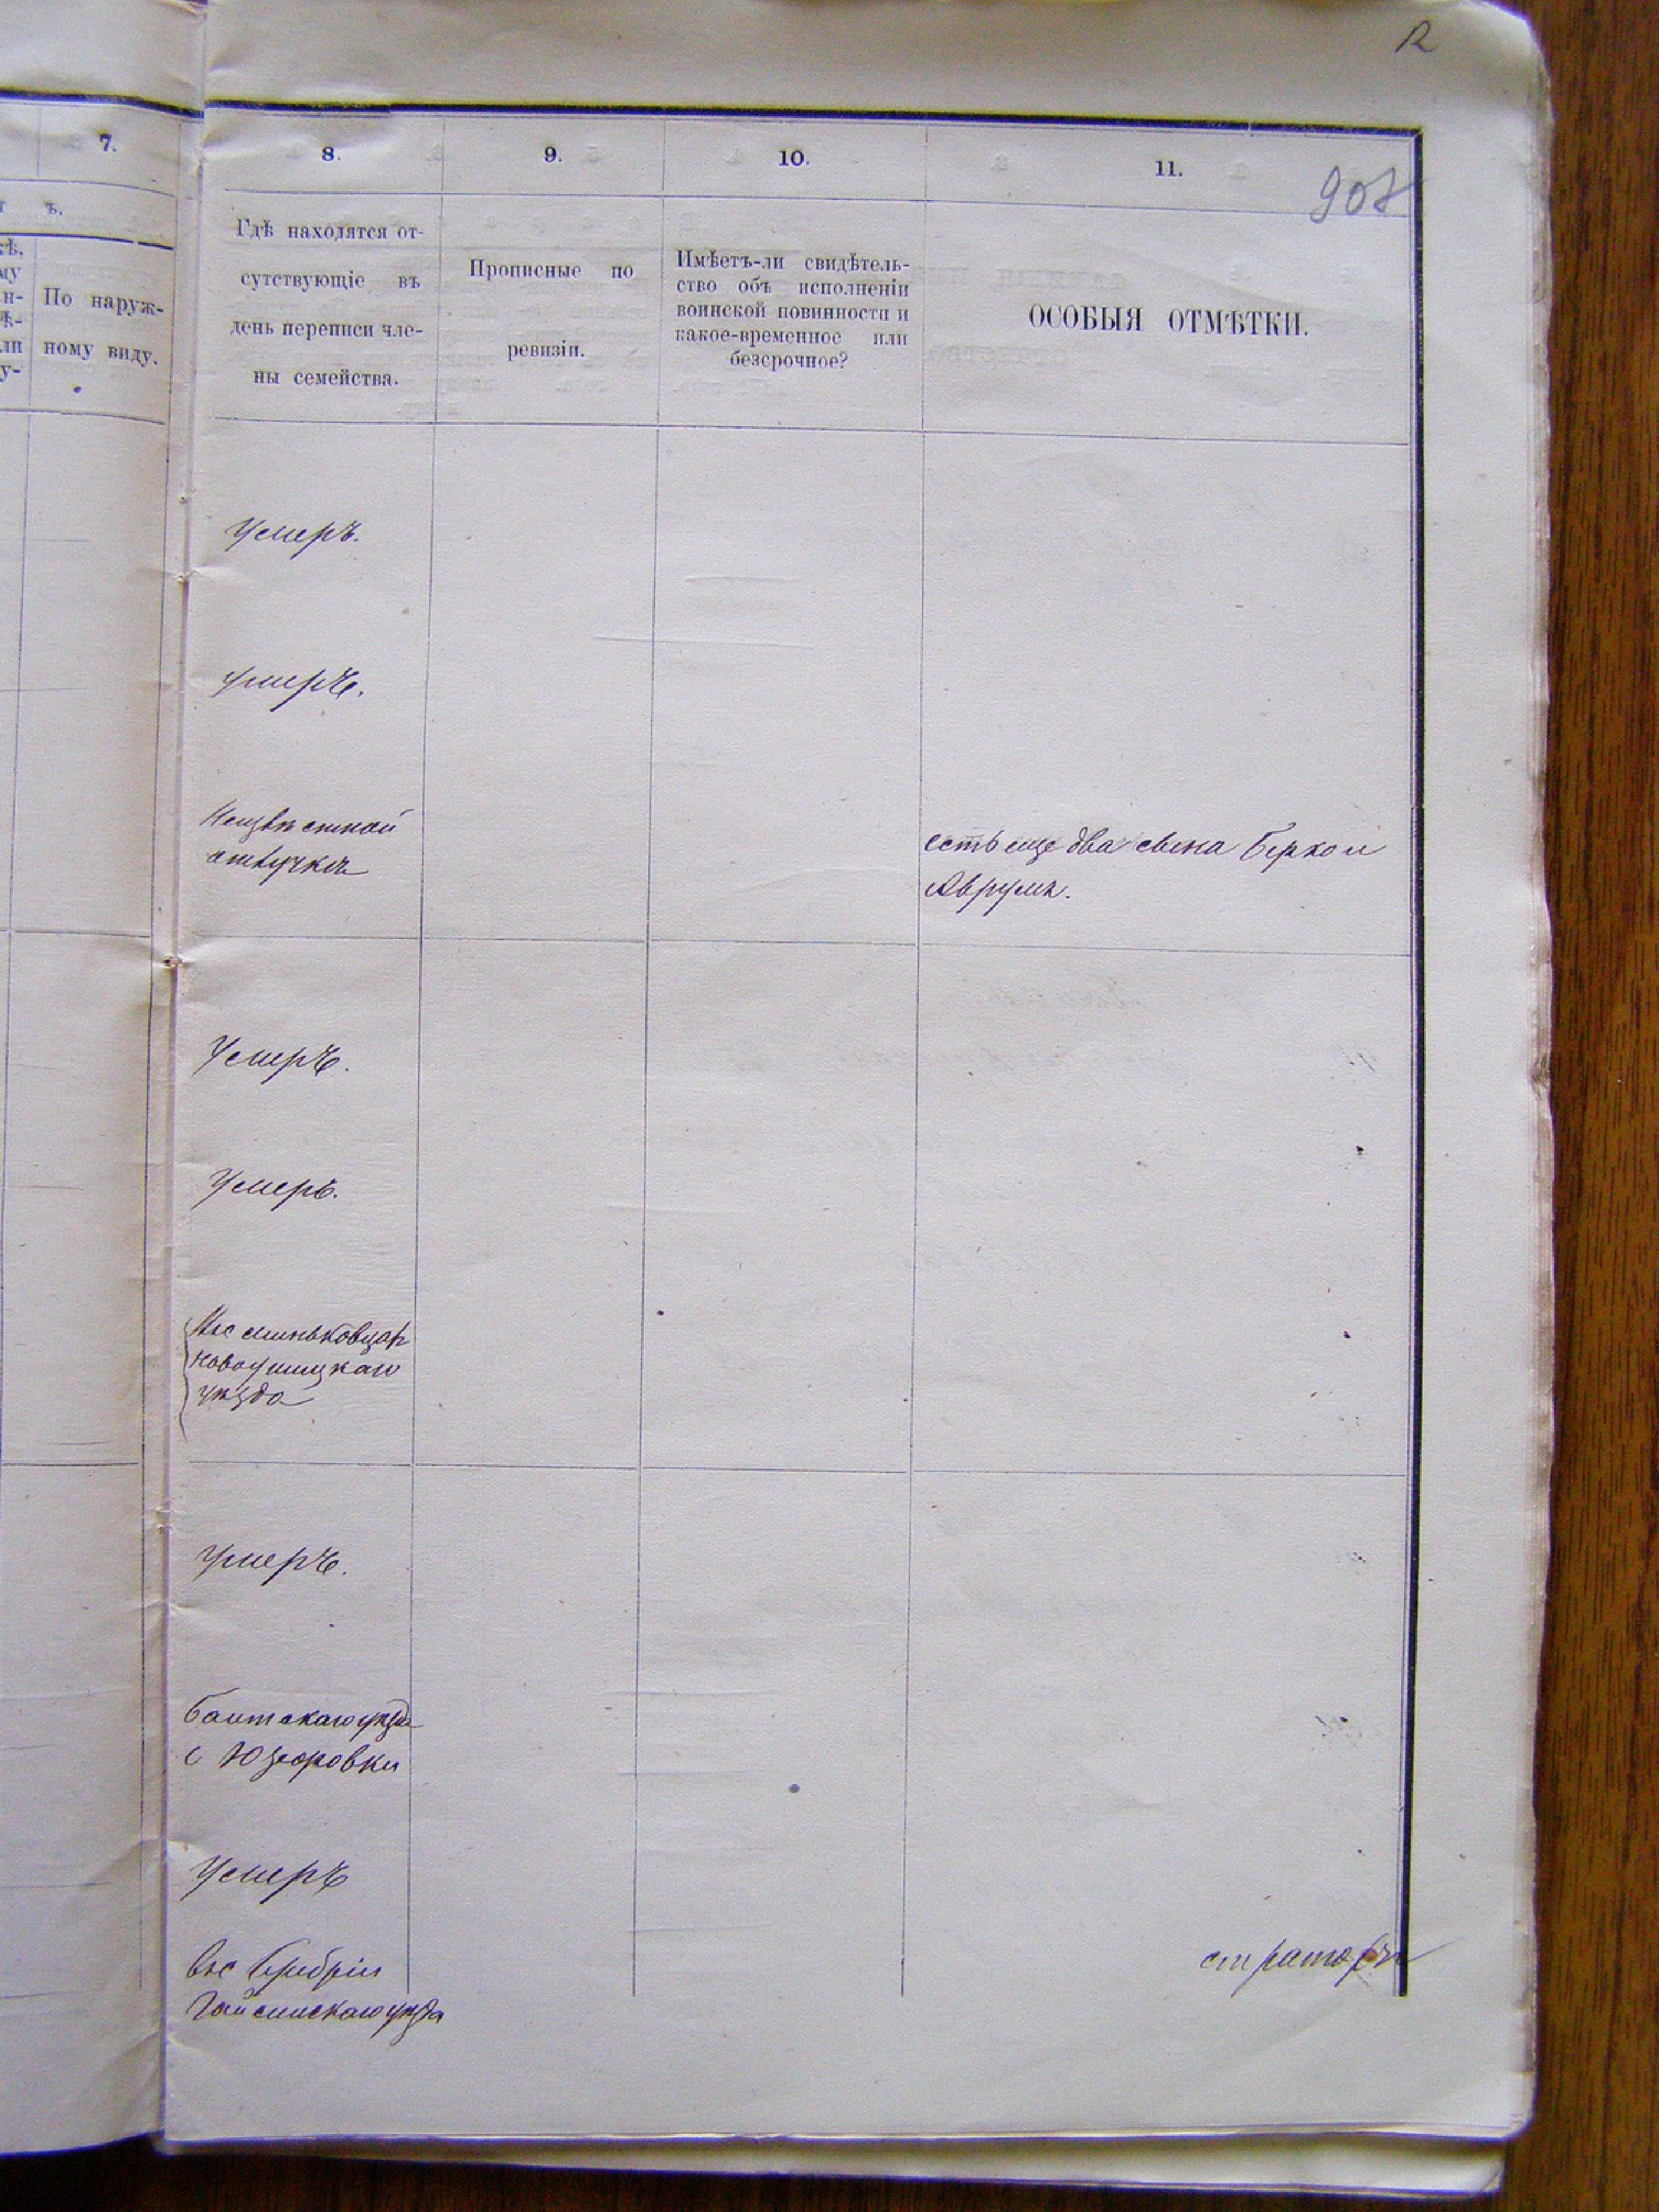 12
7.
8.
9.
10.
11.
907
ъ.
По наруж-
ному виду.
Гдѣ находятся от-
сутствующіе въ
день переписи чле-
ны семейства.
Прописные по
ревизіи.
Имѣетъ-ли свидѣтель-
ство объ исполненіи
воинской повинности и
какое-временное или
безсрочное?
ОСОБЫЯ ОТМѢТКИ.
Умеръ.
Умеръ.
Неизвѣстной
отлучки
есть еще два сына Берко и
Аврумъ.
Умеръ.
Умеръ.
Миньковцах
Новоушицкаго
уѣзда
Умеръ.
Балтскаго уѣзда
с Юзефовки
Умеръ
Гайсинскаго уѣзда